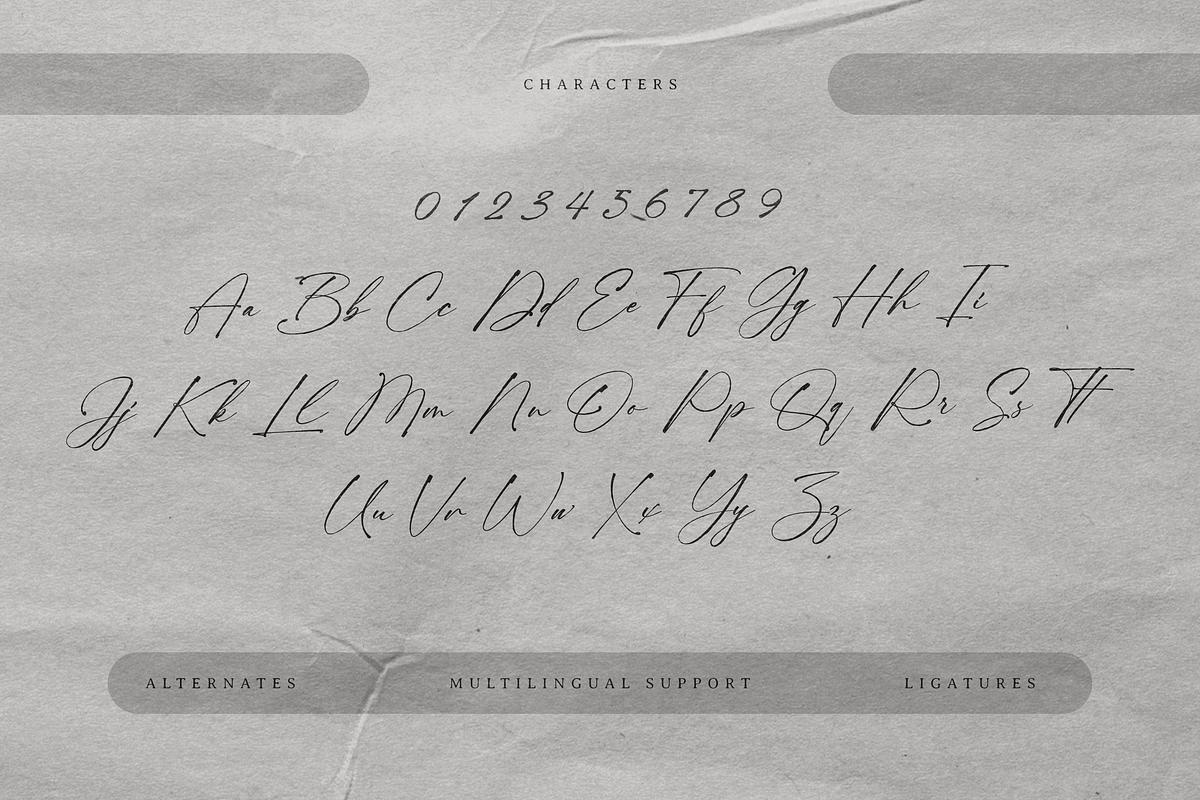 CHARACTERS
0 1 2 3 4 5 6 7 8 9
Aa Bb Cc Dd Ee Ff Gg Hh Ii
Jj Kk Ll Mm Nn Oo Pp Qq Rr Ss Tt
Uu Vv Ww Xx Yy Zz
ALTERNATES MULTILINGUAL SUPPORT LIGATURES